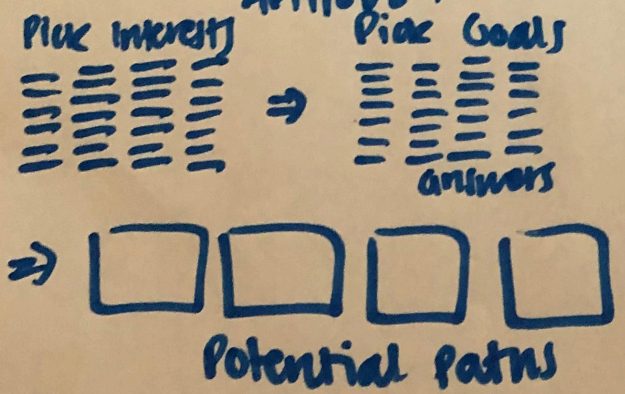 Pick Interests
Pick Goals
⇒
answers
⇒
Potential Paths